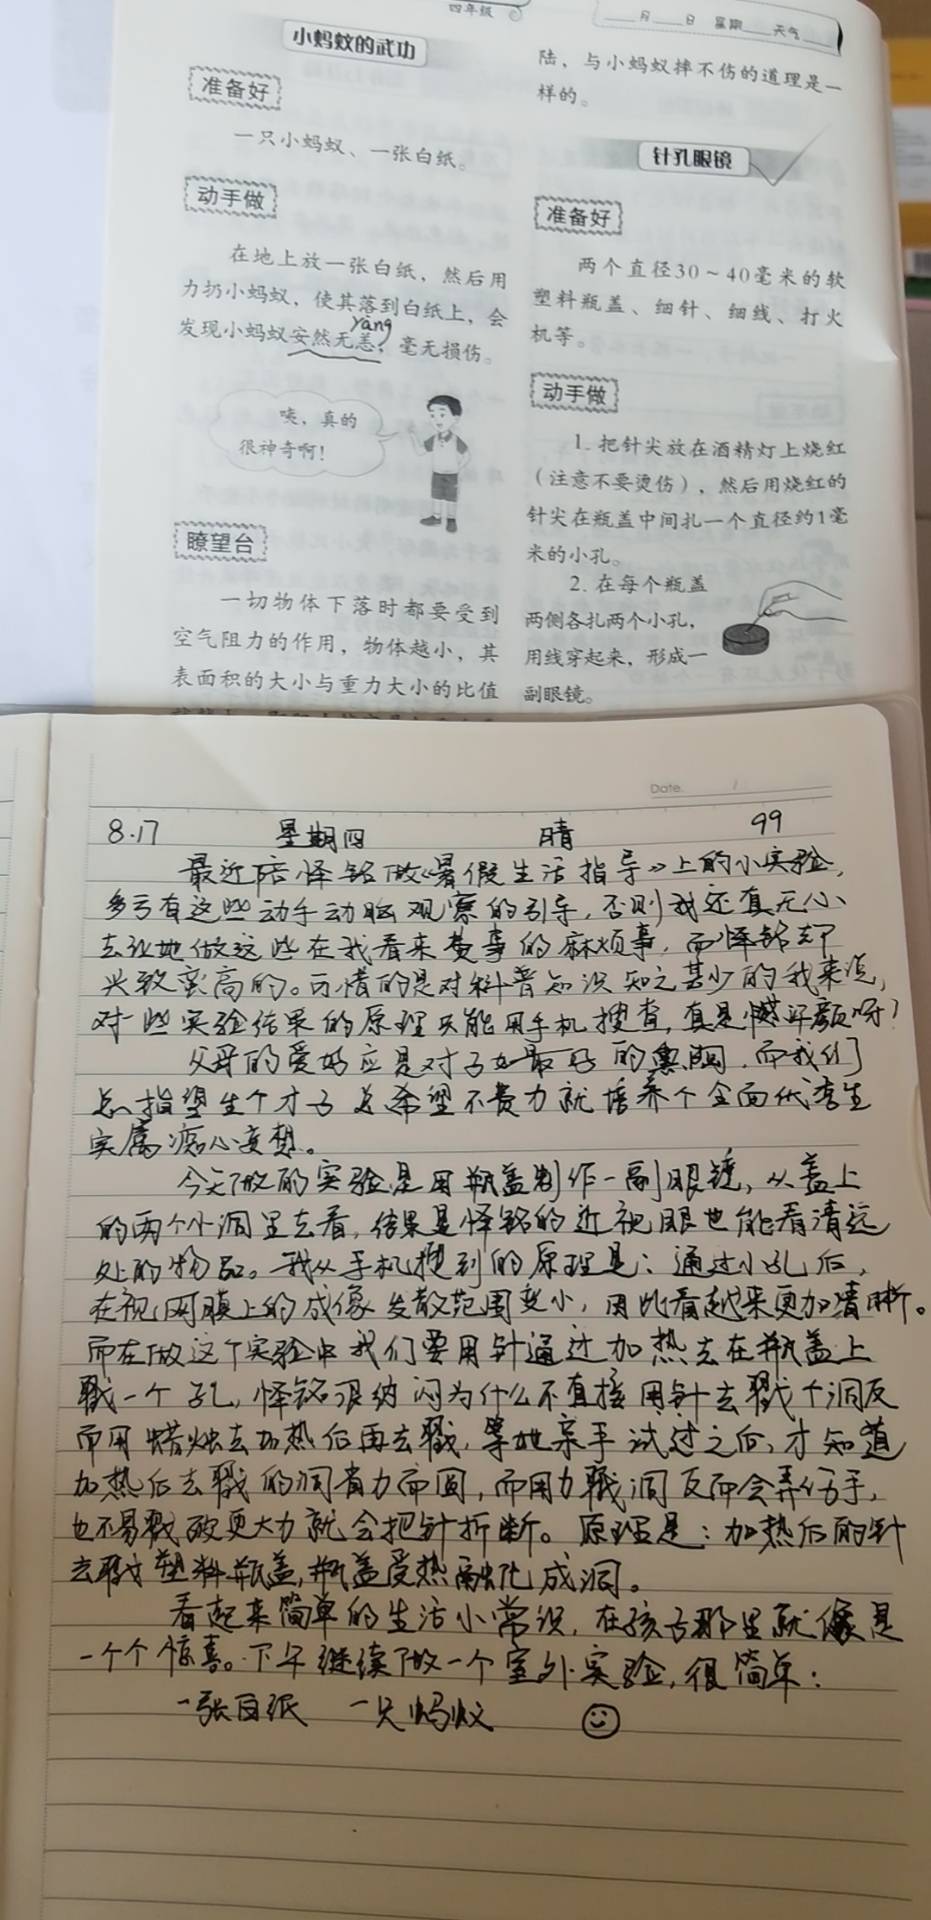 四年级
小蚂蚁的武功
准备好
一只小蚂蚁、一张白纸。
动手做
在地上放一张白纸，然后用
力扔小蚂蚁，使其落到白纸上，会
yàng
发现小蚂蚁安然无恙，毫无损伤。
咦，真的
很神奇啊！
瞭望台
一切物体下落时都要受到
空气阻力的作用，物体越小，其
表面积的大小与重力大小的比值
月 日 星期 天气
陆，与小蚂蚁摔不伤的道理是一
样的。
针孔眼镜
准备好
两个直径30～40毫米的软
塑料瓶盖、细针、细线、打火
机等。
动手做
1. 把针尖放在酒精灯上烧红
（注意不要烫伤），然后用烧红的
针尖在瓶盖中间扎一个直径约1毫
米的小孔。
2. 在每个瓶盖
两侧各扎两个小孔，
用线穿起来，形成一
副眼镜。
Date. /
8.17 星期四 晴 99
最近陪怿铭做《暑假生活指导》上的小实验，
多亏有这些动手动脑观察的引导，否则我还真无心
去让她做这些在我看来费事的麻烦事，而怿铭却
兴致蛮高的。可惜的是对科普知识知之甚少的我来说，
对一些实验结果的原理只能用手机搜查，真是憾汗颜呀！
父母的爱好应是对子女最好的熏陶，而我们
总指望生个才子 总希望不费力就培养个全面优秀生
实属痴心妄想。
今天做的实验是用瓶盖制作一副眼镜，从盖上
的两个小洞里去看，结果是怿铭的近视眼也能看清远
处的物品。我从手机搜到的原理是：通过小孔后，
在视网膜上的成像发散范围变小，因此看起来更加清晰。
而在做这个实验中我们要用针通过加热去在瓶盖上
戳一个孔，怿铭很纳闷为什么不直接用针去戳个洞反
而用蜡烛去加热后再去戳，等她亲手试过之后，才知道
加热后去戳的洞省力而圆，而用力戳洞反而会弄伤手，
也不易戳破更大力就会把针折断。原理是：加热后的针
去戳塑料瓶盖，瓶盖受热融化成洞。
看起来简单的生活小常识，在孩子那里就像是
一个个惊喜。下午继续做一个室外实验，很简单：
一张白纸 一只蚂蚁